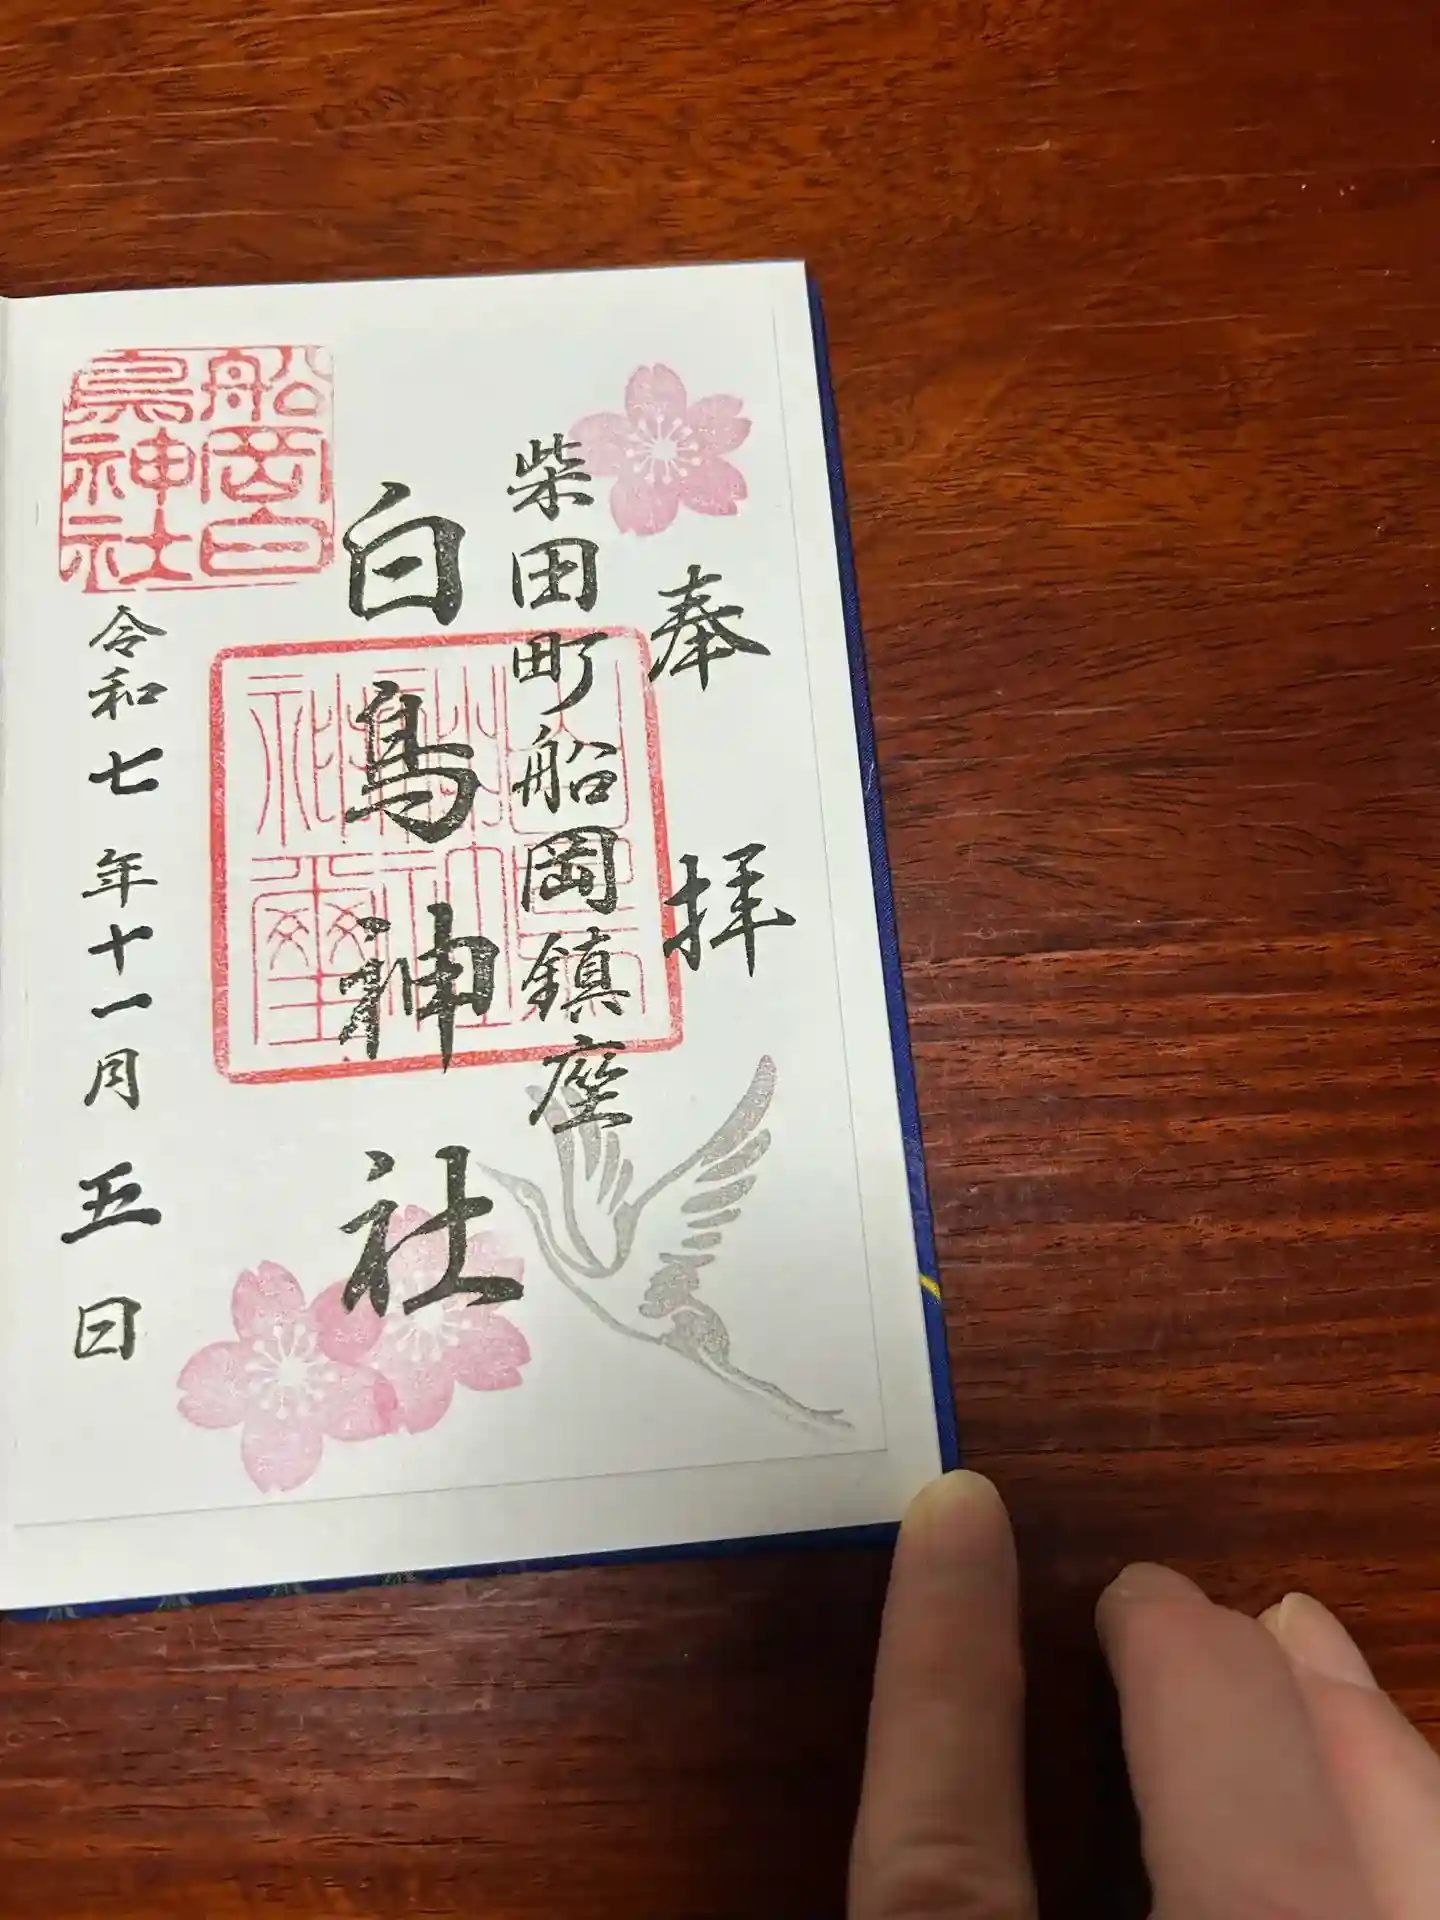 奉拝
柴田町船岡鎮座
白鳥神社
船岡白
鳥神社
令和七年十一月五日